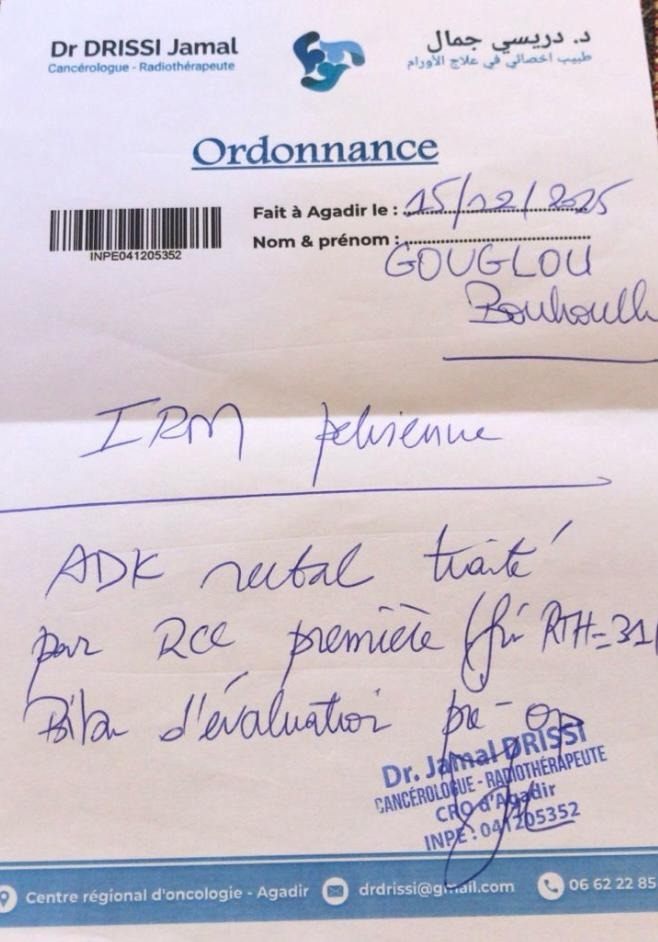 Dr DRISSI Jamal
Cancérologue - Radiothérapeute
د. دريسي جمال
طبيب اخصائي في علاج الأورام
Ordonnance
INPE041205352
Fait à Agadir le : 15/12/2025
Nom & prénom :
GOUGLOU
IRM pelvienne
ADK rectal traité
par RCC première (fin RTH=31
Bilan d'évaluation pré-op
Dr. Jamal DRISSI
CANCÉROLOGUE - RADIOTHÉRAPEUTE
CRO d'Agadir
INPE : 041205352
Centre régional d'oncologie - Agadir drdrissi@gmail.com 06 62 22 85